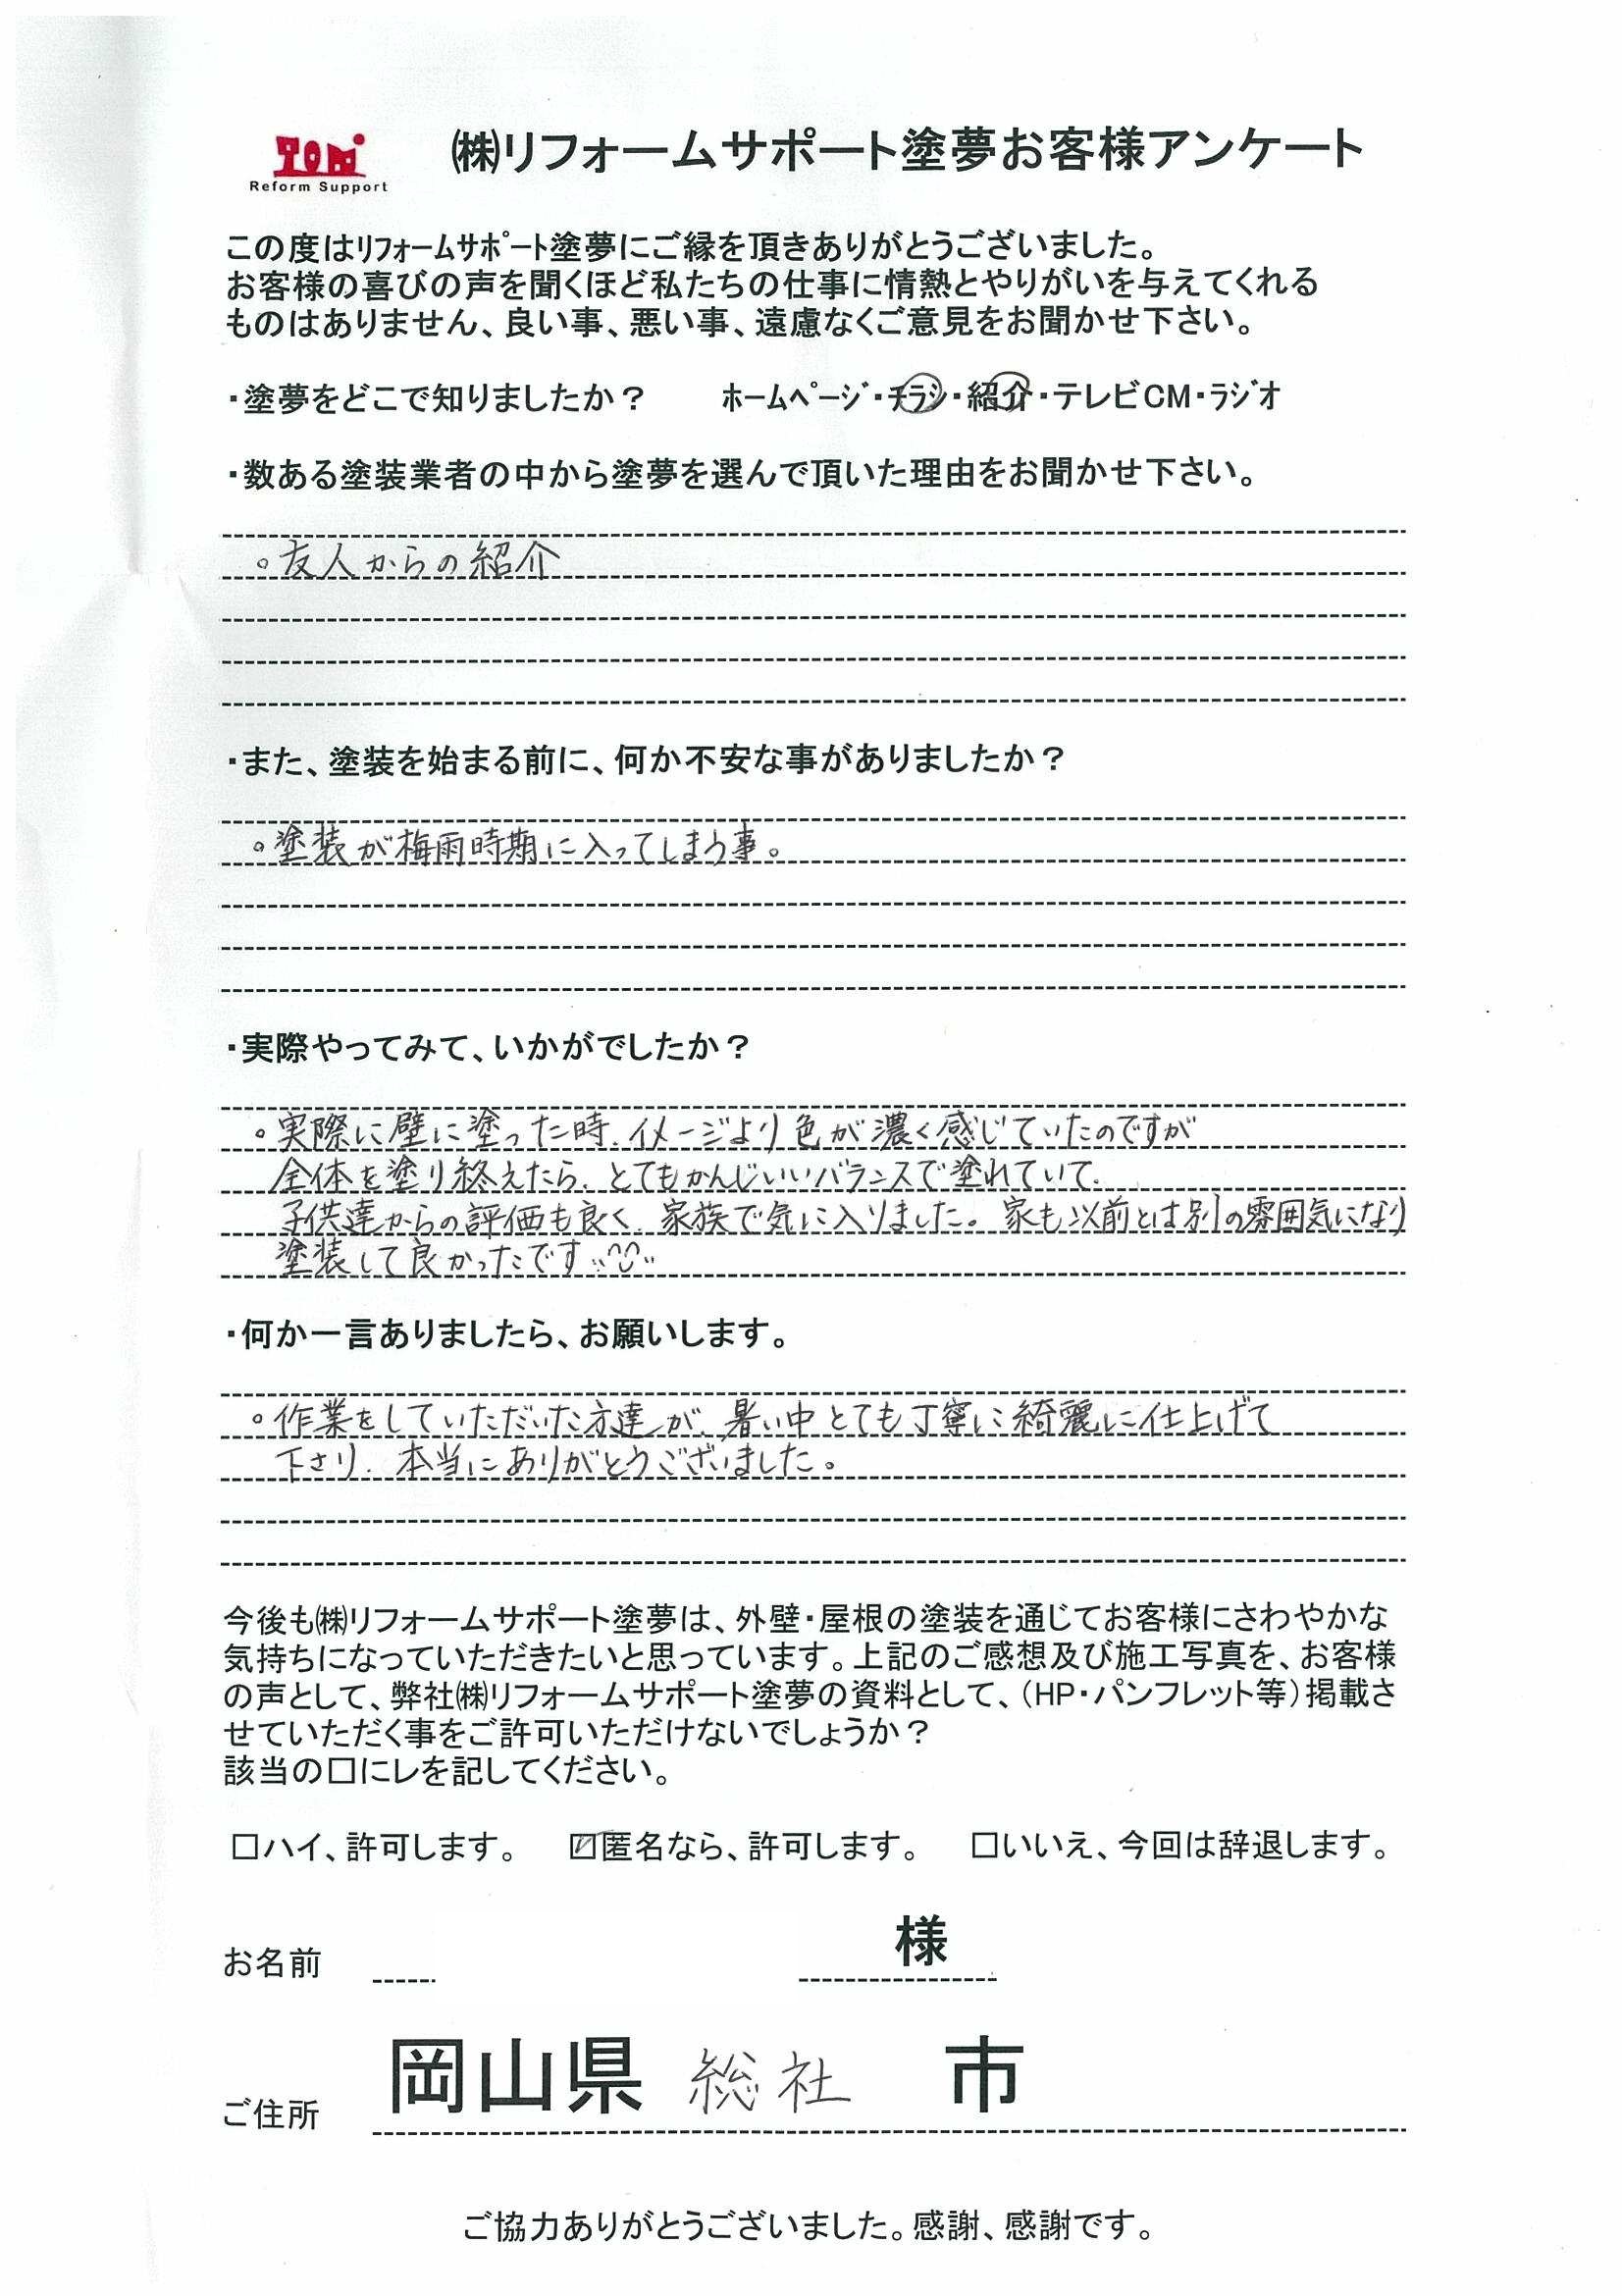 TOM
Reform Support
㈱リフォームサポート塗夢お客様アンケート
この度はﾘﾌｫｰﾑｻﾎﾟｰﾄ塗夢にご縁を頂きありがとうございました。
お客様の喜びの声を聞くほど私たちの仕事に情熱とやりがいを与えてくれる
ものはありません、良い事、悪い事、遠慮なくご意見をお聞かせ下さい。
・塗夢をどこで知りましたか？ ﾎｰﾑﾍﾟｰｼﾞ・ﾁﾗｼ・紹介・テレビCM・ﾗｼﾞｵ
・数ある塗装業者の中から塗夢を選んで頂いた理由をお聞かせ下さい。
○友人からの紹介
・また、塗装を始まる前に、何か不安な事がありましたか？
○塗装が梅雨時期に入ってしまう事。
・実際やってみて、いかがでしたか？
○実際に壁に塗った時、イメージより色が濃く感じていたのですが
全体を塗り終えたら、とてもかんじいいバランスで塗れていて、
子供達からの評価も良く、家族で気に入りました。家も以前とは別の雰囲気になり
塗装して良かったです
・何か一言ありましたら、お願いします。
○作業をしていただいた方達が、暑い中とても丁寧に綺麗に仕上げて
下さり、本当にありがとうございました。
今後も㈱リフォームサポート塗夢は、外壁・屋根の塗装を通じてお客様にさわやかな
気持ちになっていただきたいと思っています。上記のご感想及び施工写真を、お客様
の声として、弊社㈱リフォームサポート塗夢の資料として、（HP・パンフレット等）掲載さ
せていただく事をご許可いただけないでしょうか？
該当の□にレを記してください。
□ハイ、許可します。 ☑匿名なら、許可します。 □いいえ、今回は辞退します。
お名前 様
ご住所 岡山県 総社 市
ご協力ありがとうございました。感謝、感謝です。